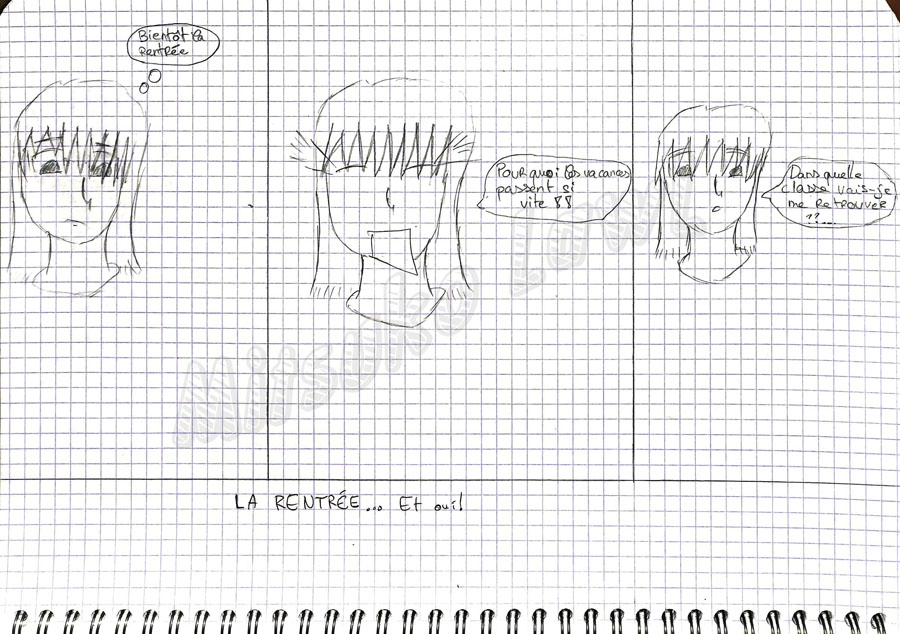 Bientôt la
rentrée
Pourquoi les vacances
passent si
vite !!
Dans quelle
classe vais-je
me retrouver
??...
LA RENTRÉE... Et oui!